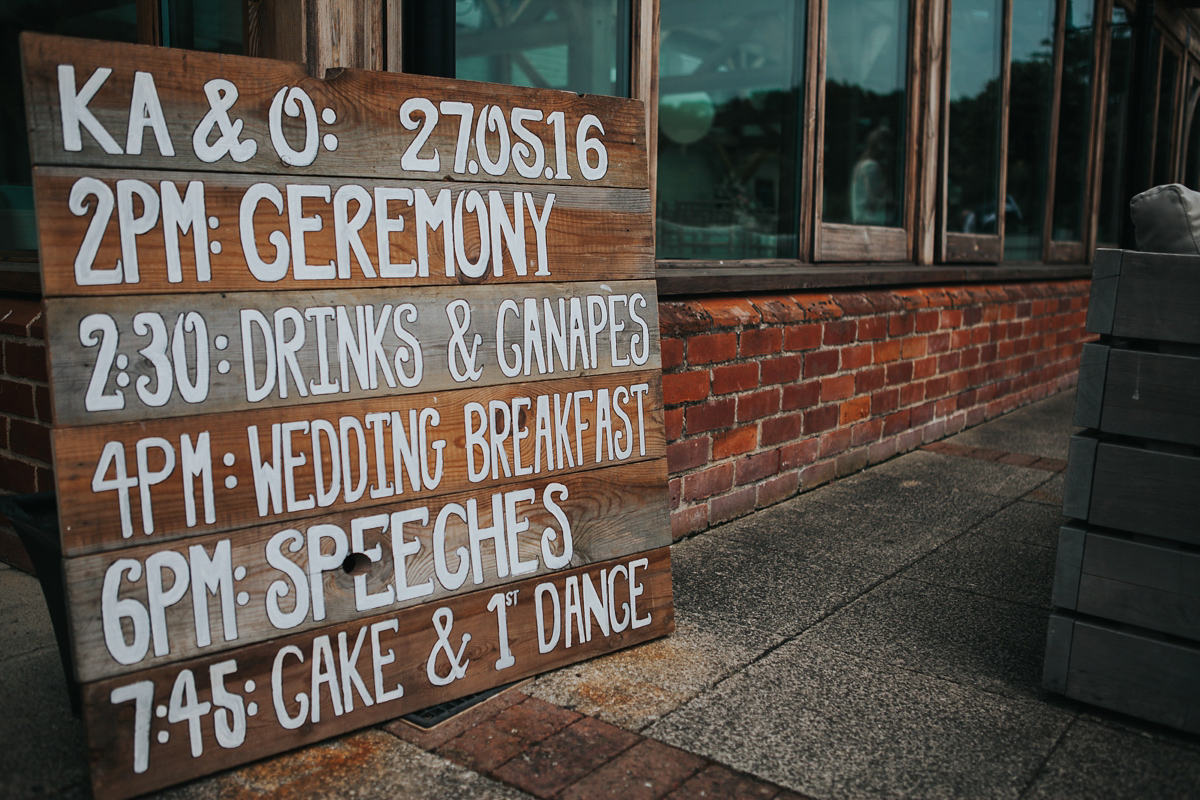 KA & O: 27.05.16
2PM: CEREMONY
2:30: DRINKS & CANAPES
4PM: WEDDING BREAKFAST
6PM: SPEECHES
7:45: CAKE & 1ST DANCE